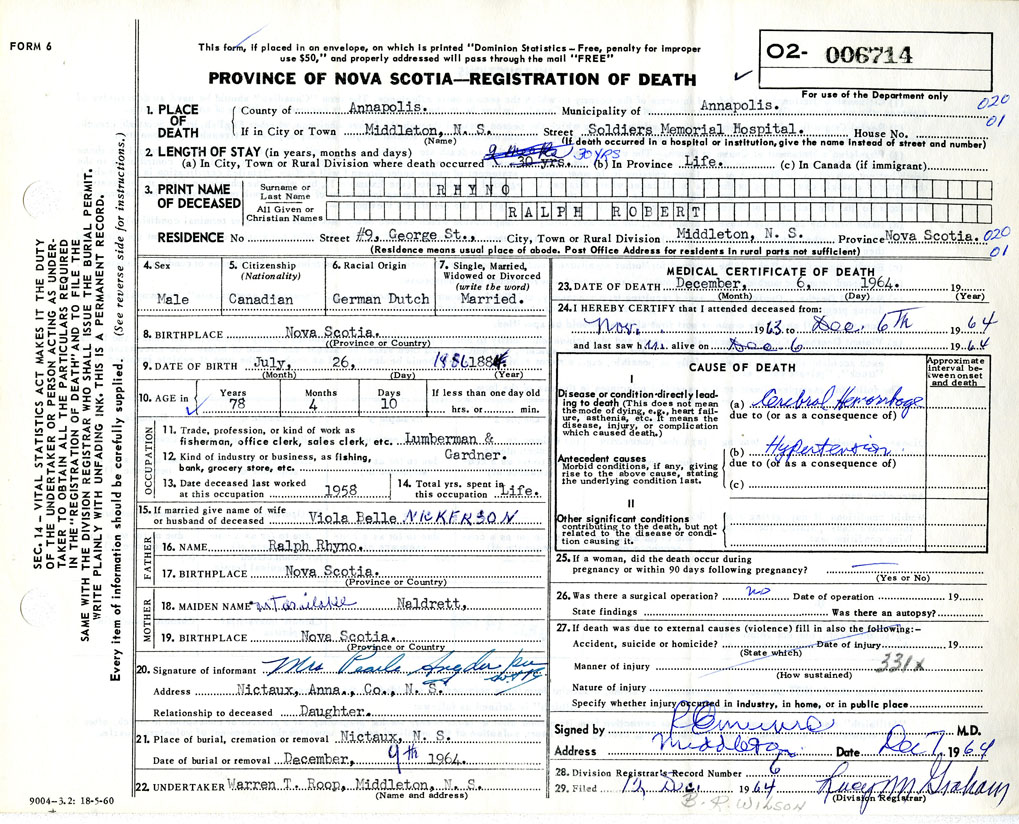 FORM 6
This form, if placed in an envelope, on which is printed "Dominion Statistics – Free, penalty for improper
use $50," and properly addressed will pass through the mail "FREE"
PROVINCE OF NOVA SCOTIA—REGISTRATION OF DEATH
O2- 006714
For use of the Department only
020
01
1. PLACE OF DEATH
County of Annapolis. Municipality of Annapolis.
If in City or Town Middleton, N. S. Street Soldiers Memorial Hospital. House No.
(Name) (If death occurred in a hospital or institution, give the name instead of street and number)
2. LENGTH OF STAY (in years, months and days)
(a) In City, Town or Rural Division where death occurred 30 yrs. 30 YRS (b) In Province Life. (c) In Canada (if immigrant)
3. PRINT NAME OF DECEASED
Surname or Last Name RHYNO
All Given or Christian Names RALPH ROBERT
RESIDENCE No Street #9, George St., City, Town or Rural Division Middleton, N. S. Province Nova Scotia. 020
(Residence means usual place of abode. Post Office Address for residents in rural parts not sufficient) 01
4. Sex
Male
5. Citizenship
(Nationality)
Canadian
6. Racial Origin
German Dutch
7. Single, Married,
Widowed or Divorced
(write the word)
Married.
8. BIRTHPLACE Nova Scotia.
(Province or Country)
9. DATE OF BIRTH July, 26, 1886
(Month) (Day) (Year)
10. AGE in
Years Months Days If less than one day old
78 4 10 hrs. or min.
OCCUPATION
11. Trade, profession, or kind of work as
fisherman, office clerk, sales clerk, etc. Lumberman &
12. Kind of industry or business, as fishing, Gardner.
bank, grocery store, etc.
13. Date deceased last worked
at this occupation 1958
14. Total yrs. spent in
this occupation Life.
15. If married give name of wife
or husband of deceased Viola Belle NICKERSON
FATHER
16. NAME Ralph Rhyno.
17. BIRTHPLACE Nova Scotia.
(Province or Country)
MOTHER
18. MAIDEN NAME not available Naldrett,
19. BIRTHPLACE Nova Scotia.
(Province or Country)
20. Signature of informant Mrs Pearle
Address Nictaux, Anna., Co., N. S.
Relationship to deceased Daughter.
21. Place of burial, cremation or removal Nictaux, N. S.
Date of burial or removal December, 9th 1964.
22. UNDERTAKER Warren T. Roop, Middleton, N. S.
(Name and address)
MEDICAL CERTIFICATE OF DEATH
23. DATE OF DEATH December, 6, 1964. 19
(Month) (Day) (Year)
24. I HEREBY CERTIFY that I attended deceased from:
Nov. 1963 to Dec. 6th 1964
and last saw him alive on Dec. 6 1964
CAUSE OF DEATH
Approximate
interval be-
tween onset
and death
I
Disease or condition directly lead-
ing to death (This does not mean
the mode of dying, e.g., heart fail-
ure, asthenia, etc. It means the
disease, injury, or complication
which caused death.)
(a) Cerebral Hemorrhage
due to (or as a consequence of)
Antecedent causes
Morbid conditions, if any, giving
rise to the above cause, stating
the underlying condition last.
(b) Hypertension
due to (or as a consequence of)
(c)
II
Other significant conditions
contributing to the death, but not
related to the disease or condi-
tion causing it.
25. If a woman, did the death occur during
pregnancy or within 90 days following pregnancy?
(Yes or No)
26. Was there a surgical operation? no Date of operation 19
State findings Was there an autopsy?
27. If death was due to external causes (violence) fill in also the following:–
Accident, suicide or homicide? Date of injury 19
(State which)
Manner of injury 331x
(How sustained)
Nature of injury
Specify whether injury occurred in industry, in home, or in public place
Signed by M.D.
Address Middleton Date Dec 7, 1964
28. Division Registrar's Record Number 6
29. Filed 12 Dec 1964 Lucy M Graham
(Division Registrar)
B. R. WILSON
SEC. 14 – VITAL STATISTICS ACT MAKES IT THE DUTY
OF THE UNDERTAKER OR PERSON ACTING AS UNDER-
TAKER TO OBTAIN ALL THE PARTICULARS REQUIRED
IN THE "REGISTRATION OF DEATH" AND TO FILE THE
SAME WITH THE DIVISION REGISTRAR WHO SHALL ISSUE THE BURIAL PERMIT.
WRITE PLAINLY WITH UNFADING INK. THIS IS A PERMANENT RECORD.
Every item of information should be carefully supplied. (See reverse side for instructions.)
9004–3.2: 18-5-60